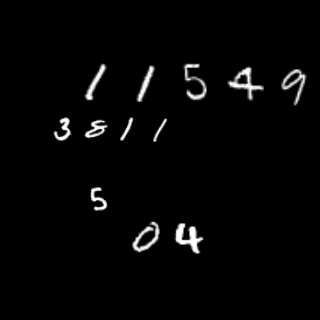 11549
3811
5
04